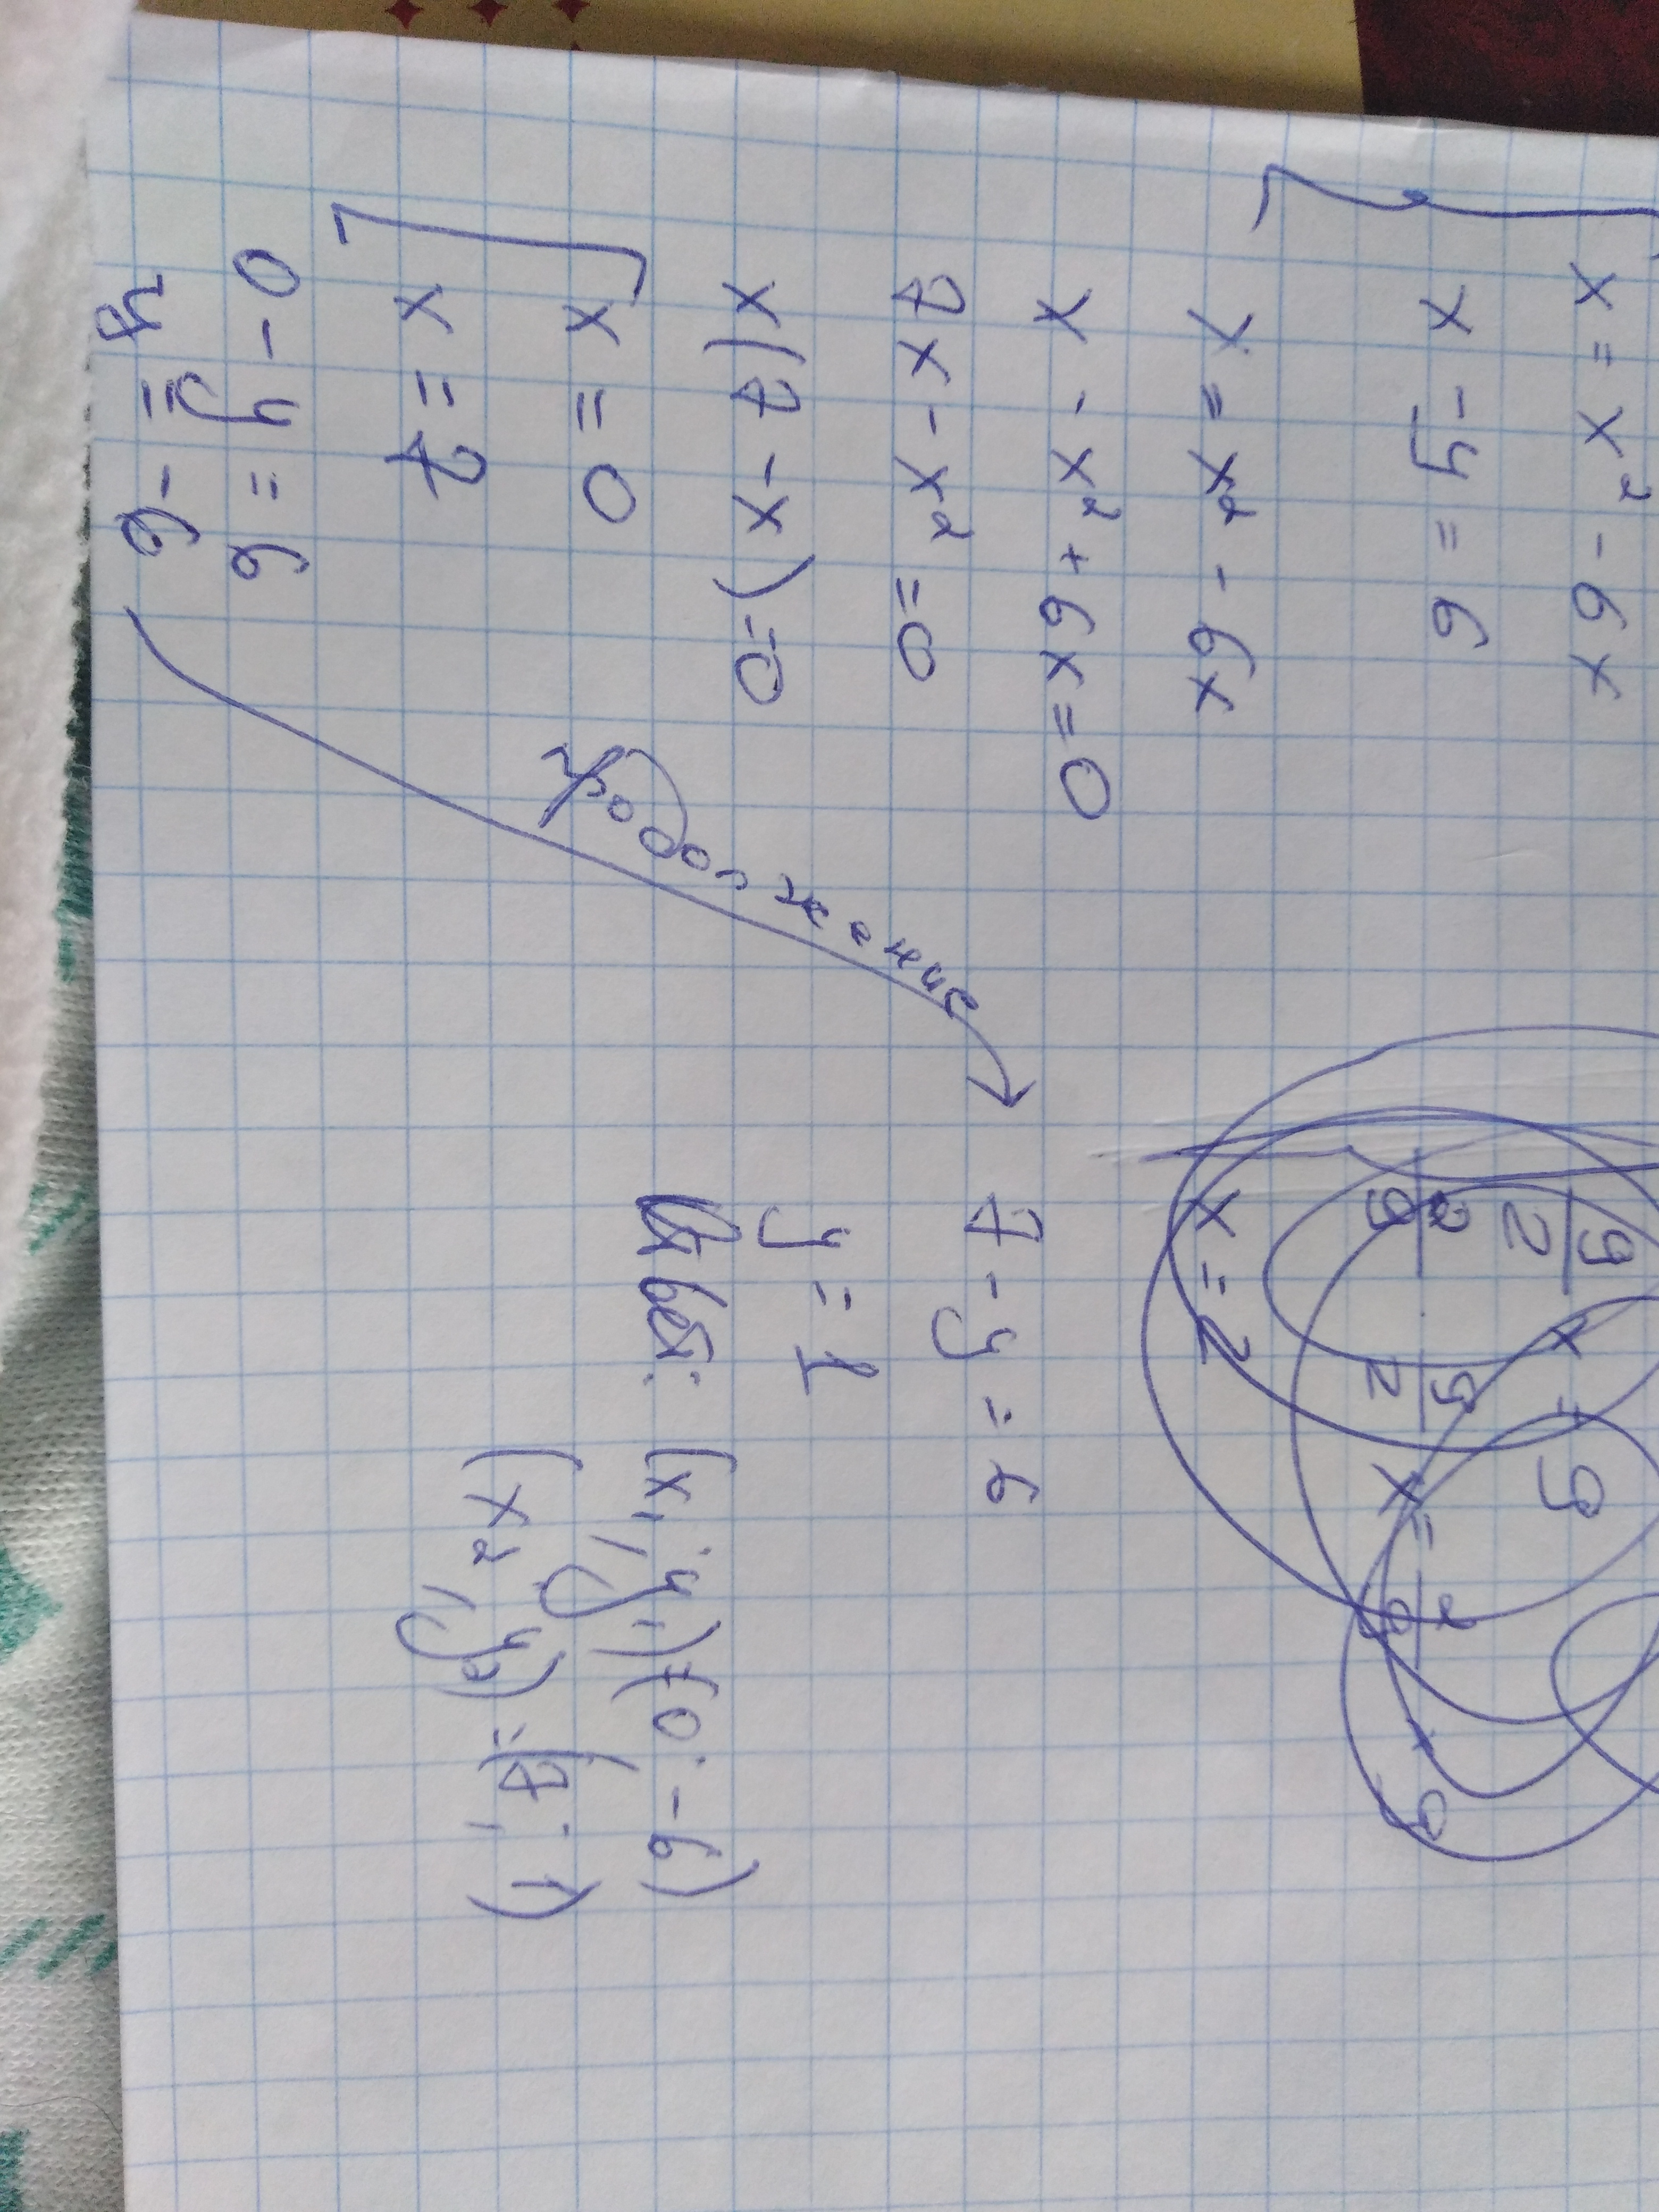 x = x² - 6x
x - y = 6
x = x² - 6x
x - x² + 6x = 0
7x - x² = 0
x(7 - x) = 0
x = 0
x = 7
0 - y = 6
y = -6
продолжение
x = 2
7 - y = 6
y = 1
Ответ: (x₁; y₁) = (0; -6)
(x₂; y₂) = (7; 1)